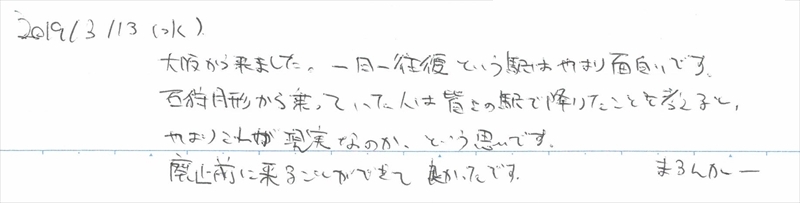 2019/3/13(水)
大阪から来ました。一日一往復という駅はやはり面白いです。
石狩月形から乗っていた人は皆この駅で降りたことを考えると、
やはりこれが現実なのか、という思いです。
廃止前に来ることができて良かったです。 まろんカー